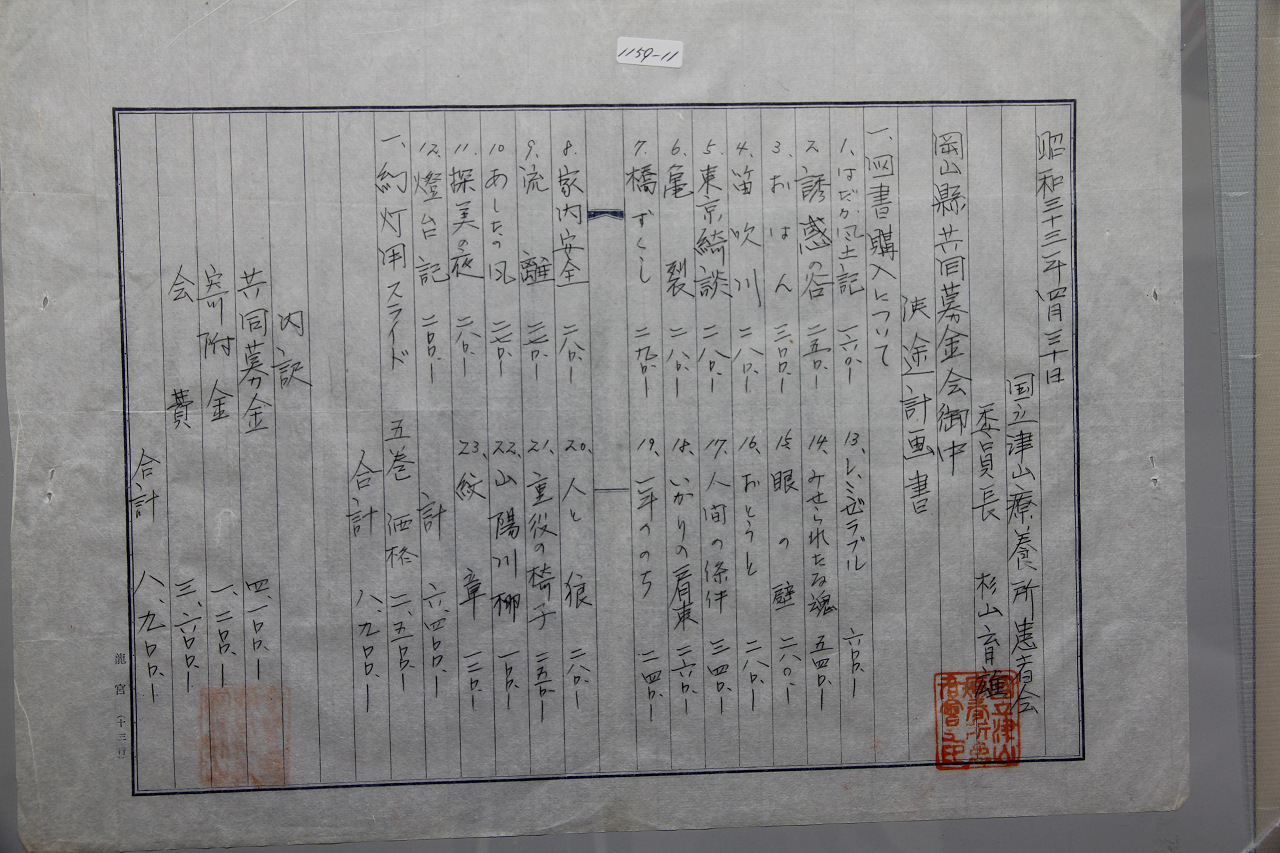 1159-11
昭和三十三年四月三十日
国立津山療養所患者会
委員長 杉山育雄
岡山縣共同募金会御中
使途計画書
一、図書購入について
1、はだか風土記 一六〇.ー
2、誘惑の谷 二五〇.ー
3、おはん 三〇〇.ー
4、笛吹川 二八〇.ー
5、東京綺談 二八〇.ー
6、亀裂 二八〇.ー
7、橋づくし 二九〇.ー
8、家内安全 二八〇.ー
9、流離 二七〇.ー
10、あしたの風 二七〇.ー
11、探美の夜 二八〇.ー
12、燈台記 二〇〇.ー
13、レ・ミゼラブル 六〇〇.ー
14、みせられたる魂 五四〇.ー
15、眼の壁 二八〇.ー
16、おとうと 二八〇.ー
17、人間の條件 三四〇.ー
18、いかりの肩束 二六〇.ー
19、一年ののち 二四〇.ー
20、人と狼 二八〇.ー
21、重役の椅子 二五〇.ー
22、山陽川柳 一〇〇.ー
23、紋章 一二〇.ー
計 六、四〇〇.ー
一、幻灯用スライド 五巻 価格 二、五〇〇.ー
合計 八、九〇〇.ー
内訳
共同募金 四、一〇〇.ー
寄附金 一、二〇〇.ー
会費 三、六〇〇.ー
合計 八、九〇〇.ー
龍宮(十三行)
国立津山療養所患者會之印